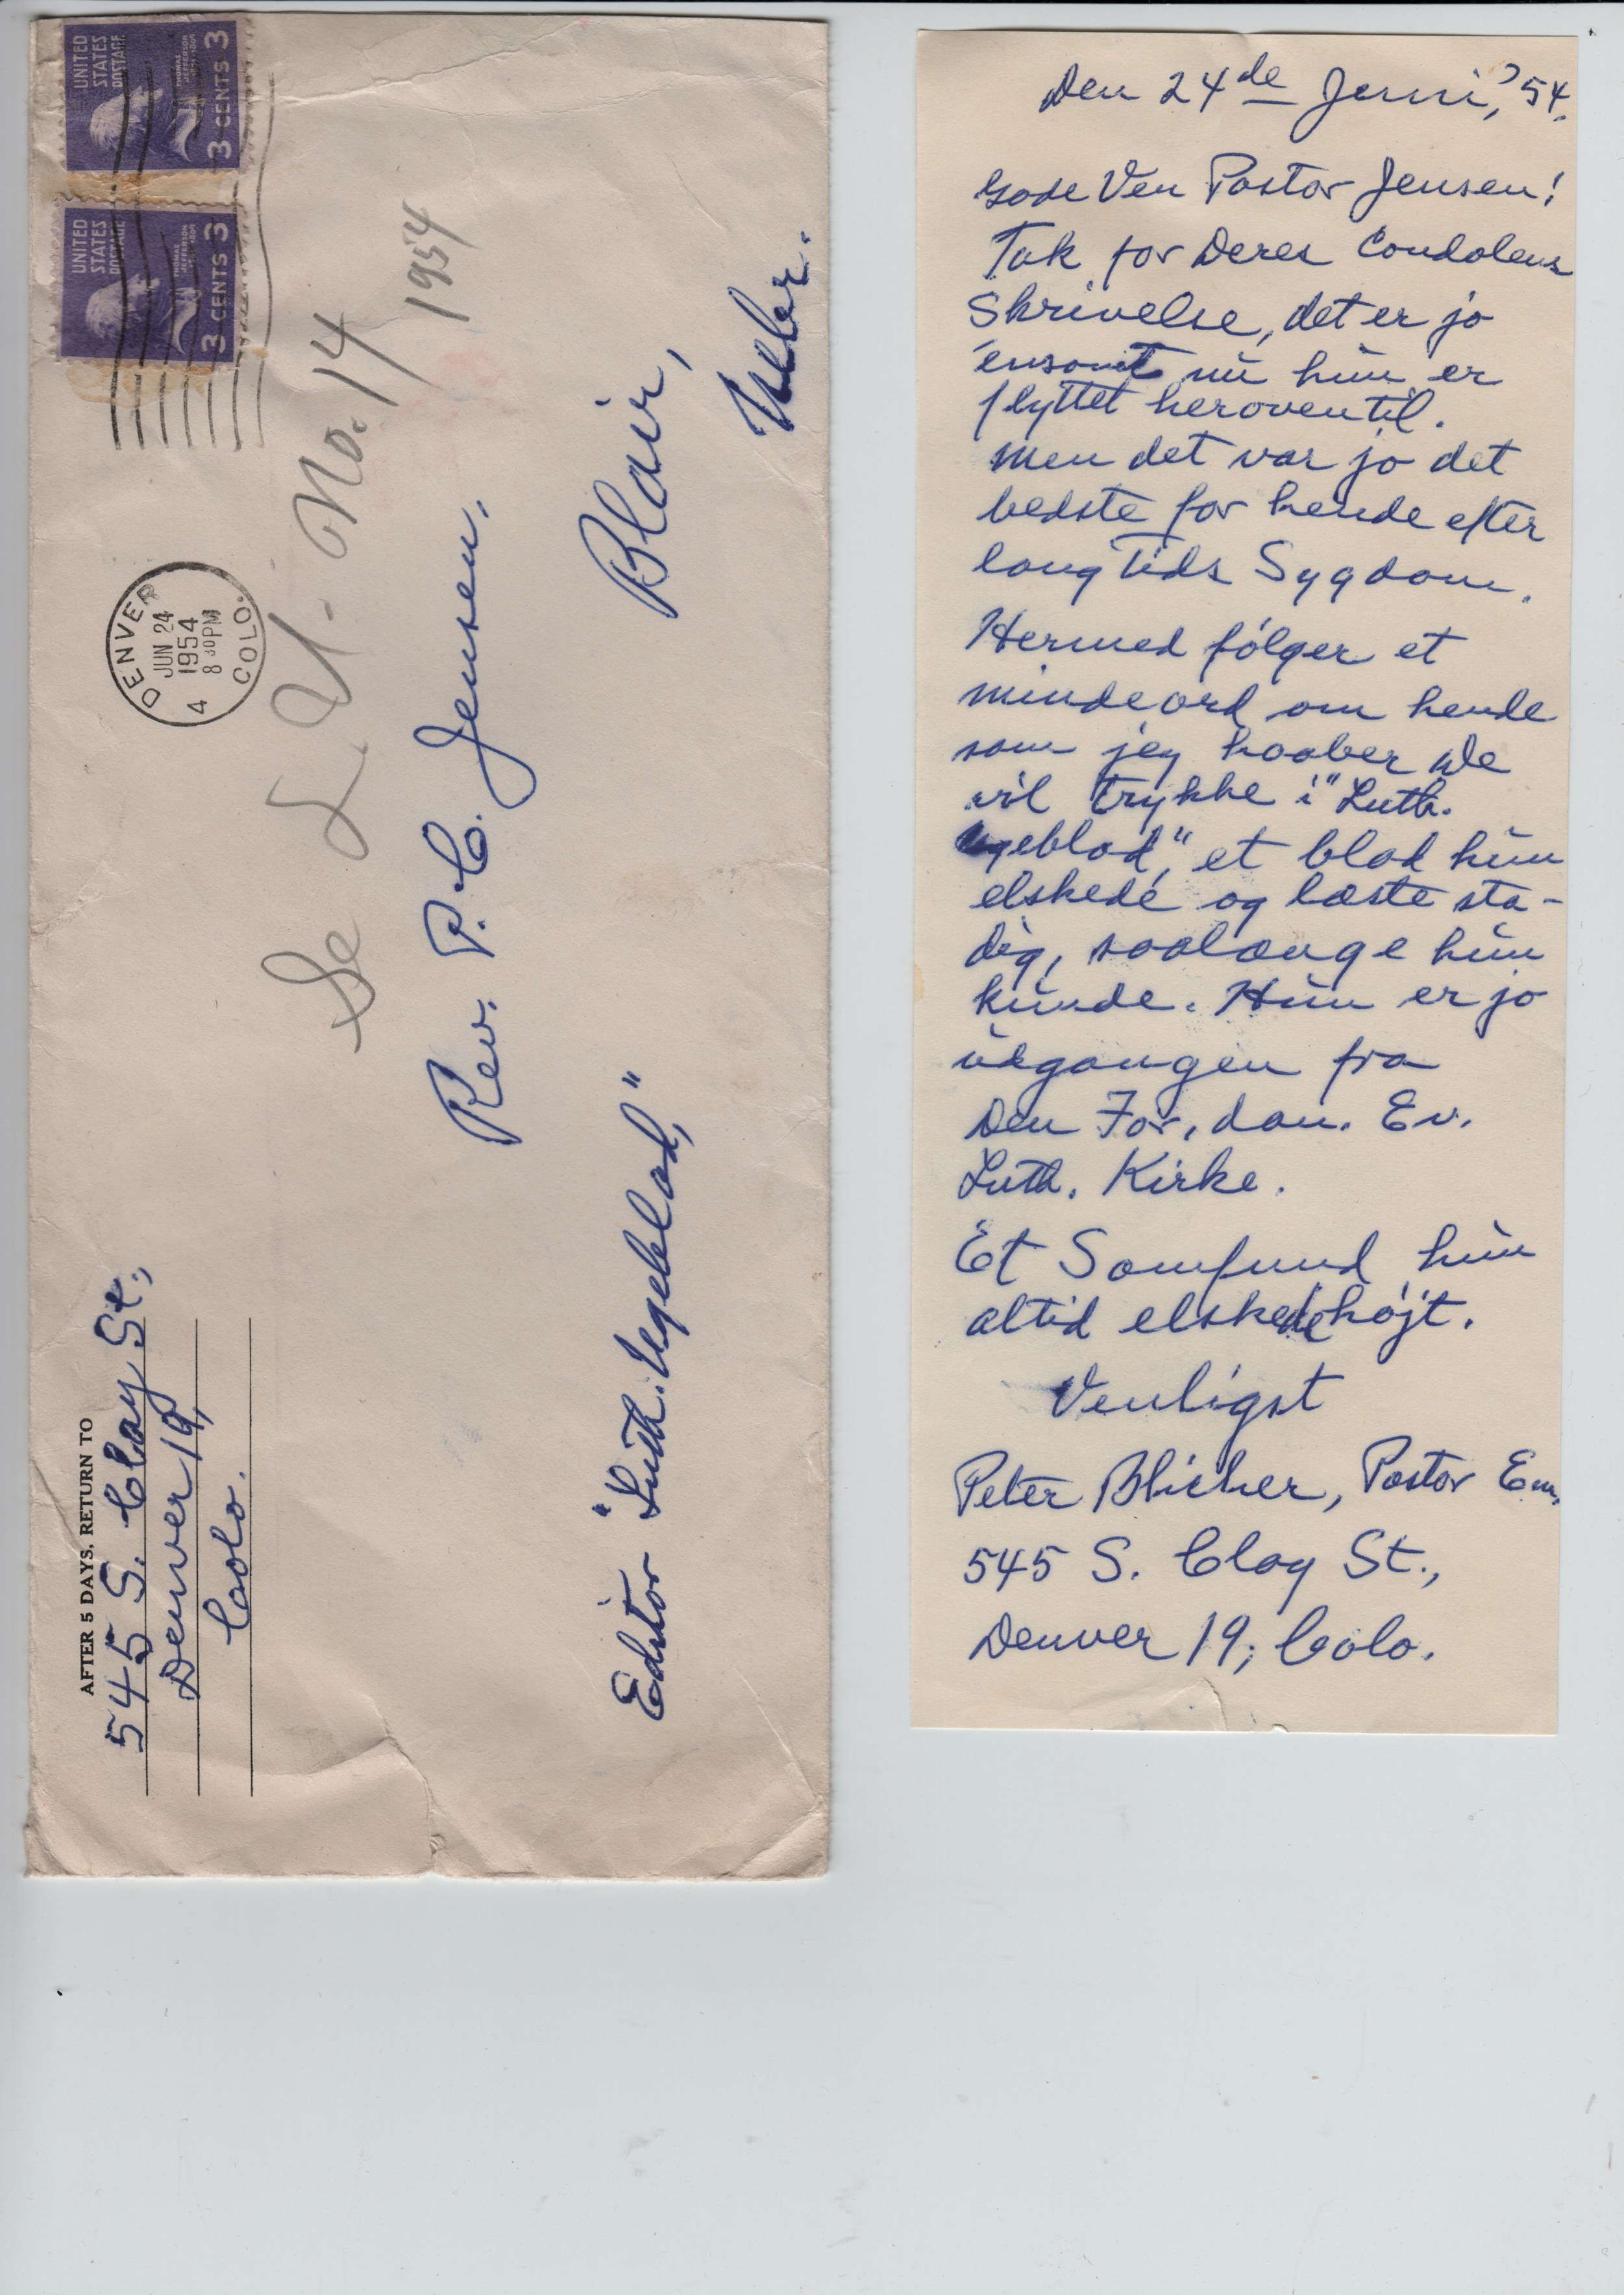 UNITED
STATES
POSTAGE
THOMAS
JEFFERSON
3 CENTS 3
UNITED
STATES
POSTAGE
THOMAS
JEFFERSON
3 CENTS 3
DENVER
JUN 24
1954
8 30 PM
4
COLO.
AFTER 5 DAYS, RETURN TO
545 S. Clay St.,
Denver 19,
Colo.
Se L. U. - No. 14
1954
Rev. P. C. Jensen,
Editor "Luth. Ugeblad,"
Blair,
Nebr.
Den 24de Juni, '54.
Gode Ven Pastor Jensen!
Tak for Deres Condolens
Skrivelse, det er jo
ensomt nu hun er
flyttet heroventil.
Men det var jo det
bedste for hende efter
lang Tids Sygdom.
Hermed følger et
mindeord om hende
som jeg haaber De
vil trykke i "Luth.
Ugeblad," et blad hun
elskede og læste sta-
dig, saalænge hun
kunde. Hun er jo
udgangen fra
Den For. dan. Ev.
Luth. Kirke.
Et Samfund hun
altid elskede højt.
Venligst
Peter Blicher, Pastor Em.
545 S. Clay St.,
Denver 19, Colo.